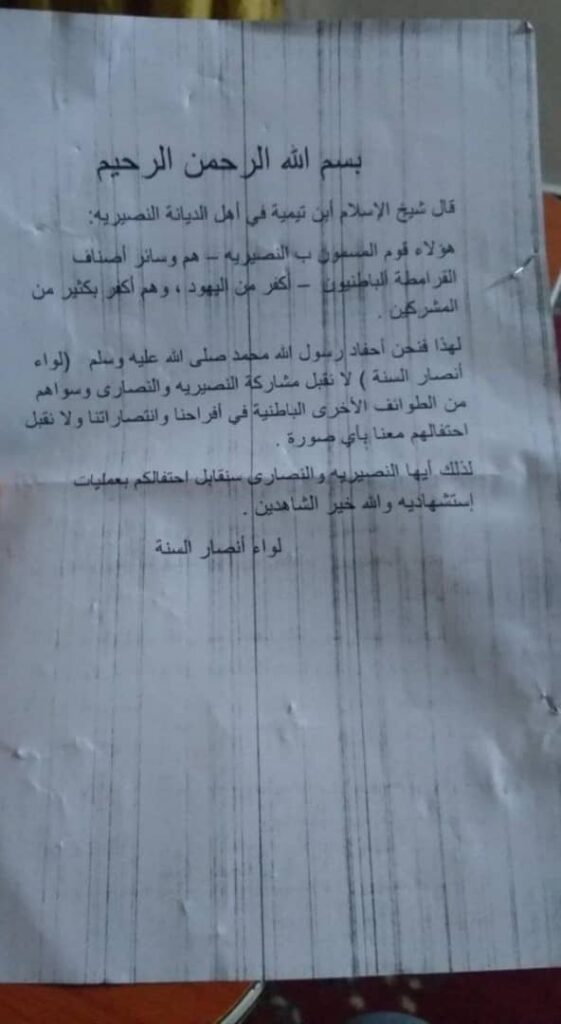 بسم الله الرحمن الرحيم
قال شيخ الإسلام أبن تيمية في أهل الديانة النصيريه:
هؤلاء قوم المسمون ب النصيريه – هم وسائر أصناف
القرامطة الباطنيون – أكفر من اليهود ، وهم أكفر بكثير من
المشركين .
لهذا فنحن أحفاد رسول الله محمد صلى الله عليه وسلم (لواء
أنصار السنة ) لا نقبل مشاركة النصيريه والنصارى وسواهم
من الطوائف الأخرى الباطنية في أفراحنا وانتصاراتنا ولا نقبل
احتفالهم معنا بأي صورة .
لذلك أيها النصيريه والنصارى سنقابل احتفالكم بعمليات
إستشهاديه والله خير الشاهدين .
لواء أنصار السنة